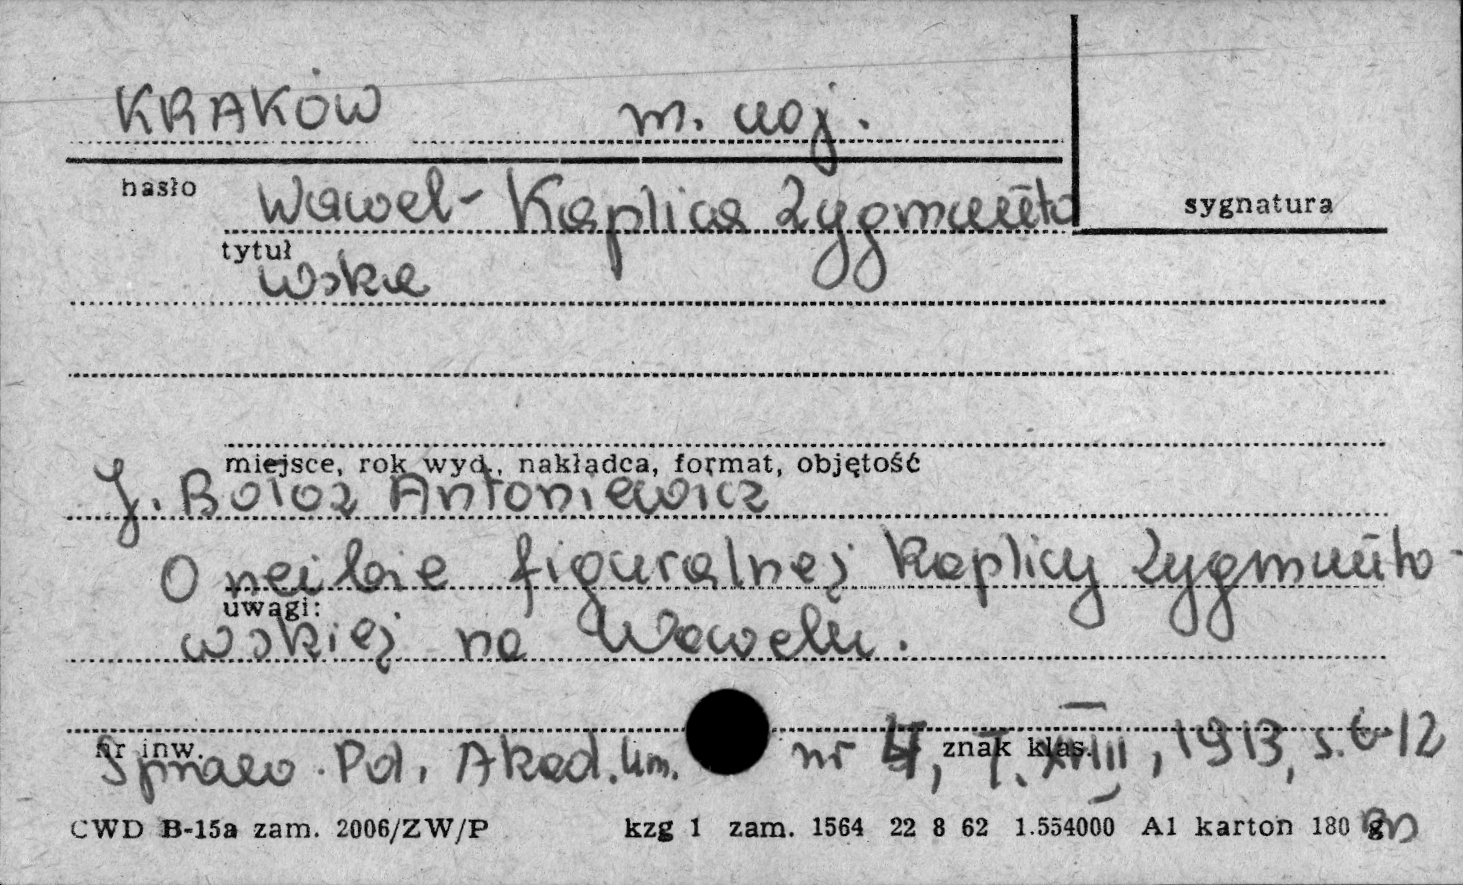 KRAKÓW m. woj.
hasło
Wawel - Kaplica Zygmunto
sygnatura
tytuł
wska
miejsce, rok wyd., nakładca, format, objętość
J. Bołoz Antoniewicz
O rzeźbie figuralnej kaplicy Zygmunto-
uwagi:
wskiej na Wawelu.
nr inw. znak klas.
Spraw. Pol. Akad. Um. nr 4, T. XVIII, 1913, s. 6-12
CWD B-15a zam. 2006/ZW/P kzg 1 zam. 1564 22 8 62 1.554000 A1 karton 180 g